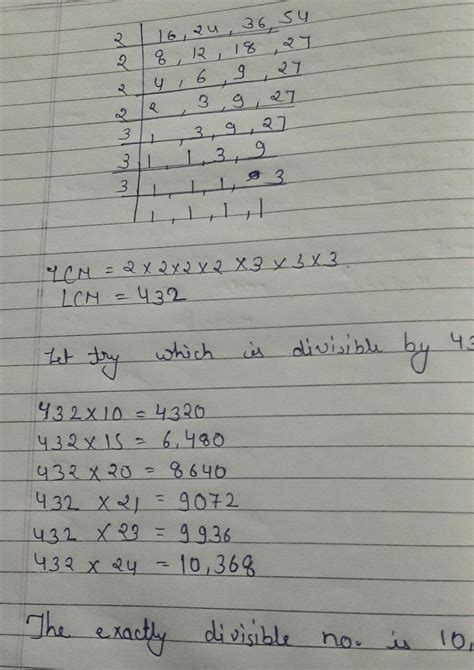 2 | 16, 24, 36, 54
2 | 8, 12, 18, 27
2 | 4, 6, 9, 27
2 | 2, 3, 9, 27
3 | 1, 3, 9, 27
3 | 1, 1, 3, 9
3 | 1, 1, 1, 3
1, 1, 1, 1
LCM = 2×2×2×2×3×3×3
LCM = 432
Let try which is divisible by 43
432×10 = 4320
432×15 = 6,480
432×20 = 8640
432 × 21 = 9072
432 × 23 = 9936
432 × 24 = 10,368
The exactly divisible no. is 10,